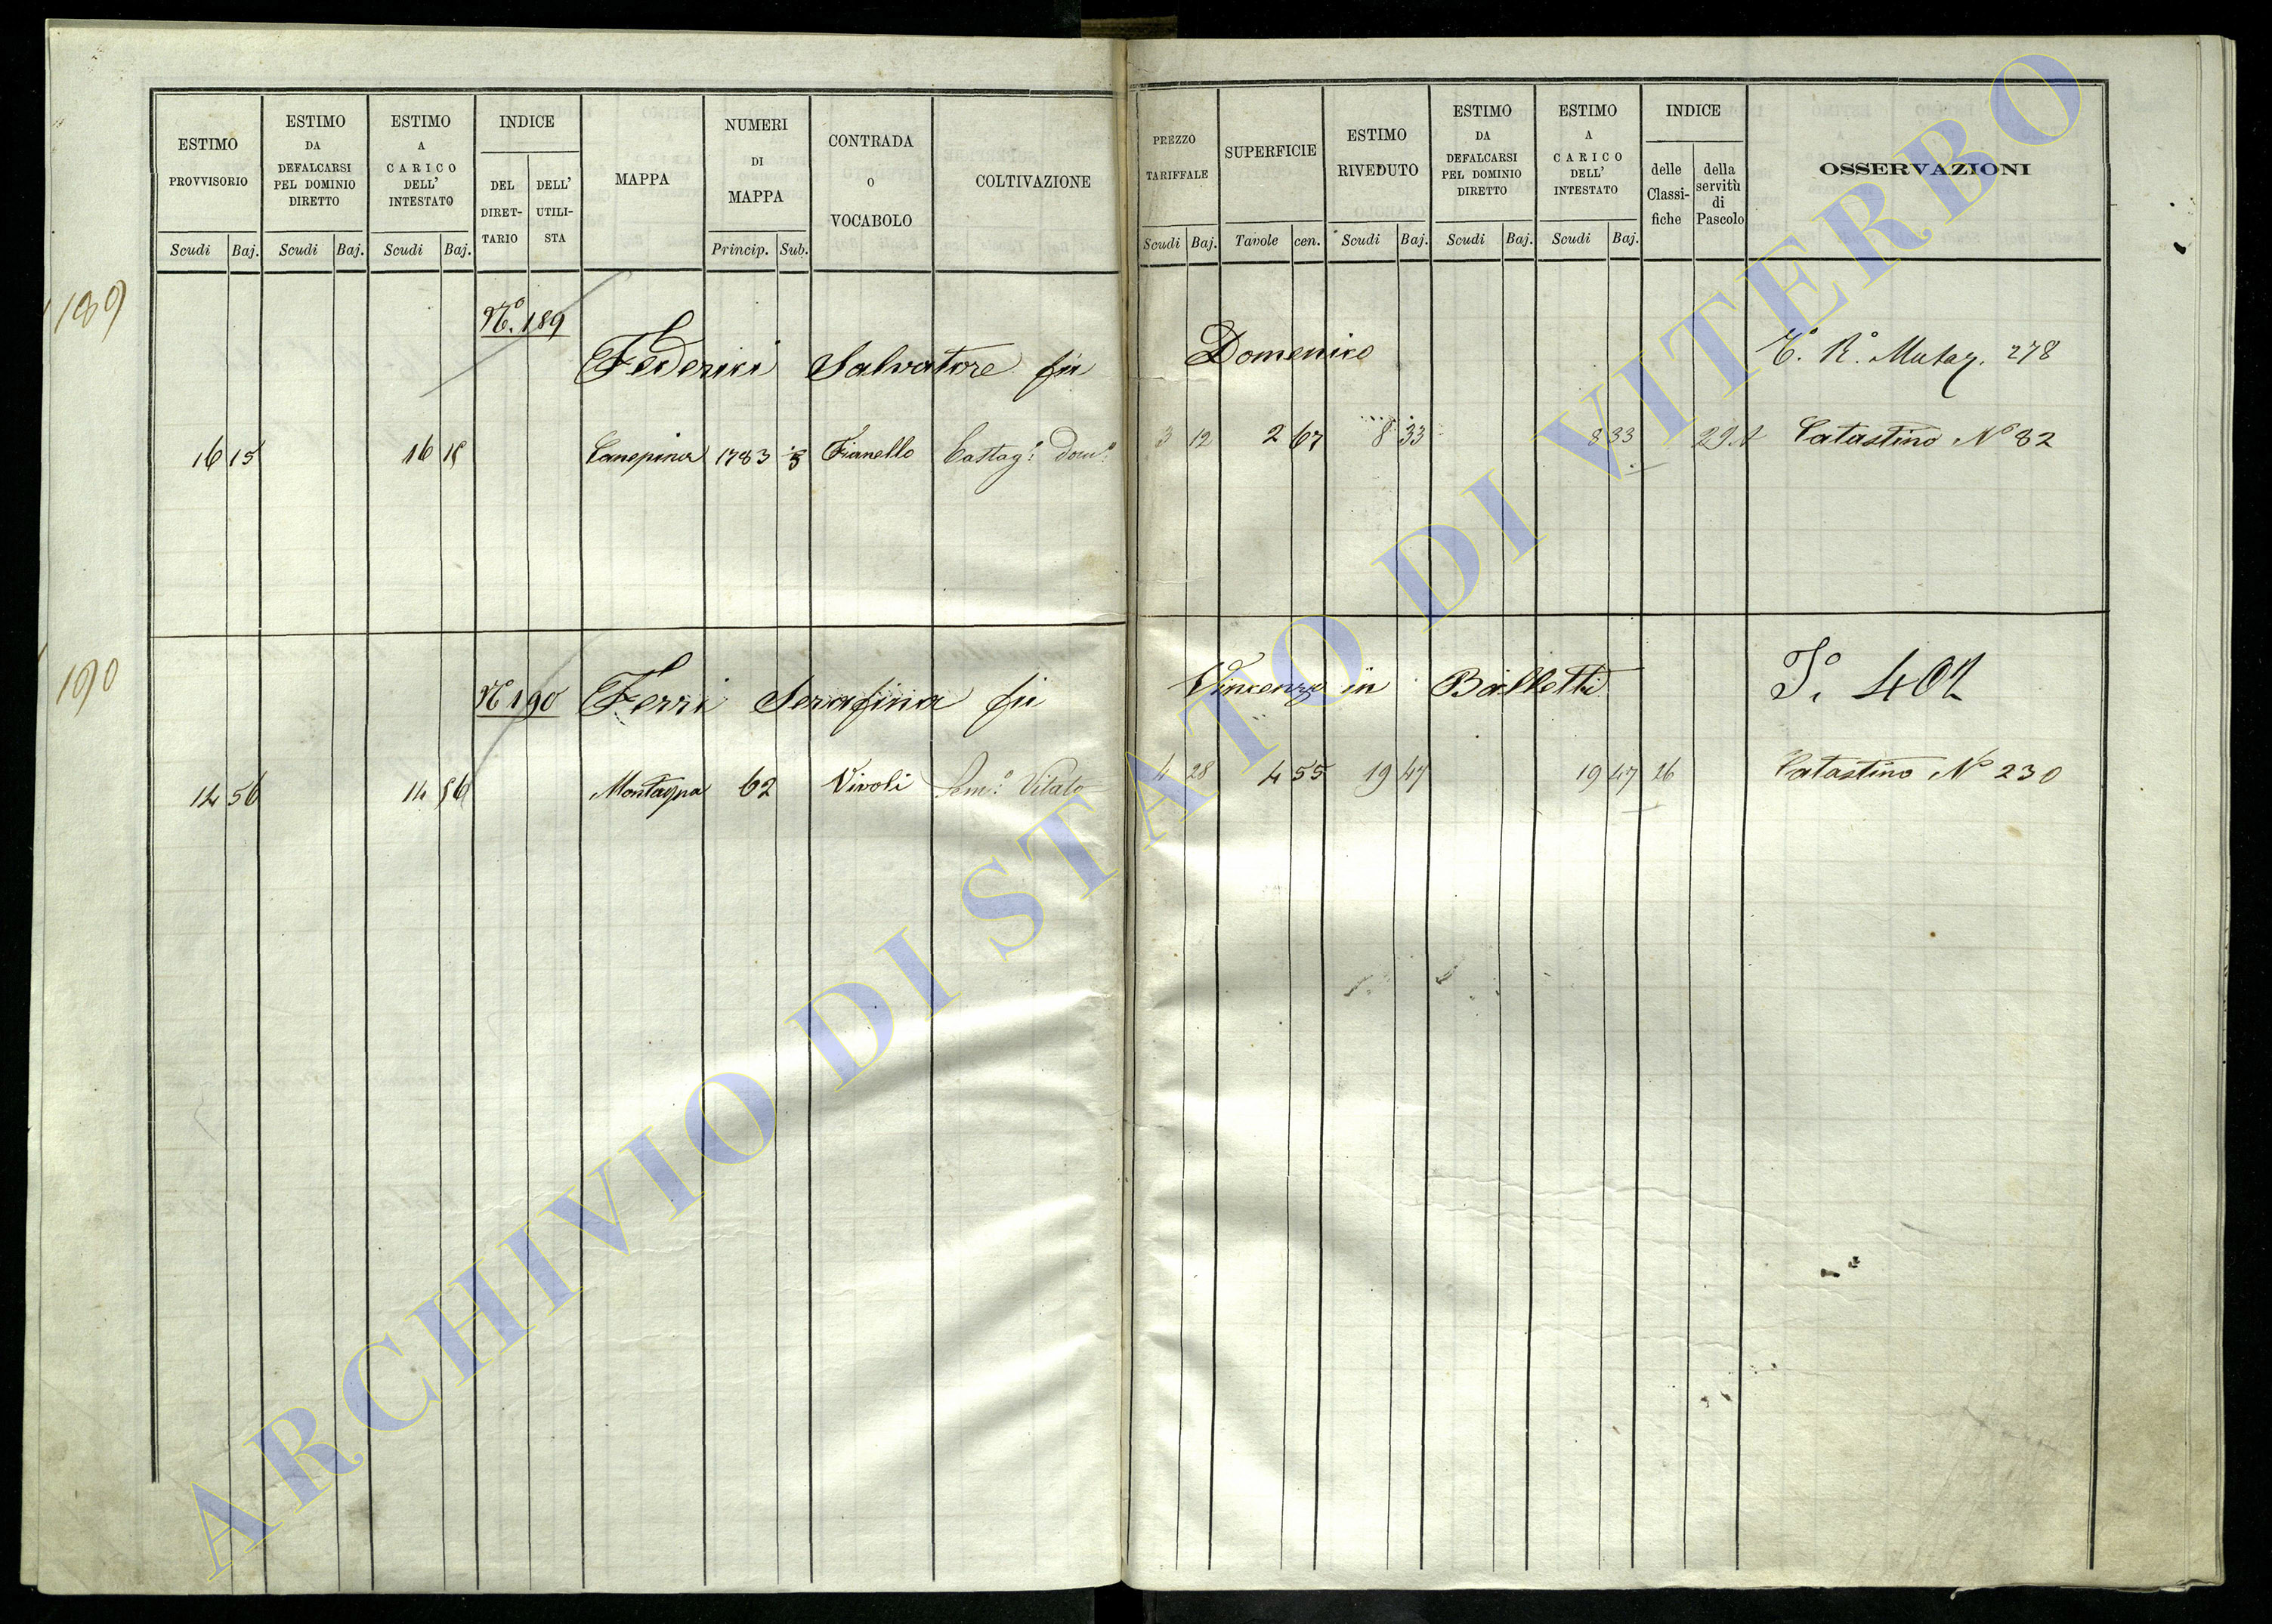 ESTIMO PROVVISORIO
ESTIMO DA DEFALCARSI PEL DOMINIO DIRETTO
ESTIMO A CARICO DELL' INTESTATO
INDICE
DEL DIRETTARIO
DELL' UTILISTA
MAPPA
NUMERI DI MAPPA
CONTRADA O VOCABOLO
COLTIVAZIONE
PREZZO TARIFFALE
SUPERFICIE
ESTIMO RIVEDUTO
ESTIMO DA DEFALCARSI PEL DOMINIO DIRETTO
ESTIMO A CARICO DELL' INTESTATO
INDICE
delle Classifiche
della servitù di Pascolo
OSSERVAZIONI
Scudi Baj. Scudi Baj. Scudi Baj. Princip. Sub. Scudi Baj. Tavole cen. Scudi Baj. Scudi Baj. Scudi Baj.
189
Nº. 189
Federici Salvatore fu Domenico
278
16 15 16 15 Canepina 1783 Fianello Castagº domº 3 12 2 67 8 33 8 33 29 Catastino Nº 82
190
Nº 190 Ferri Serafina fu Vincenzo in Balletti
14 56 14 56 Montagna 62 Vivoli Semº Vitato 4 28 4 55 19 47 19 47 26 Catastino Nº 230
ARCHIVIO DI STATO DI VITERBO